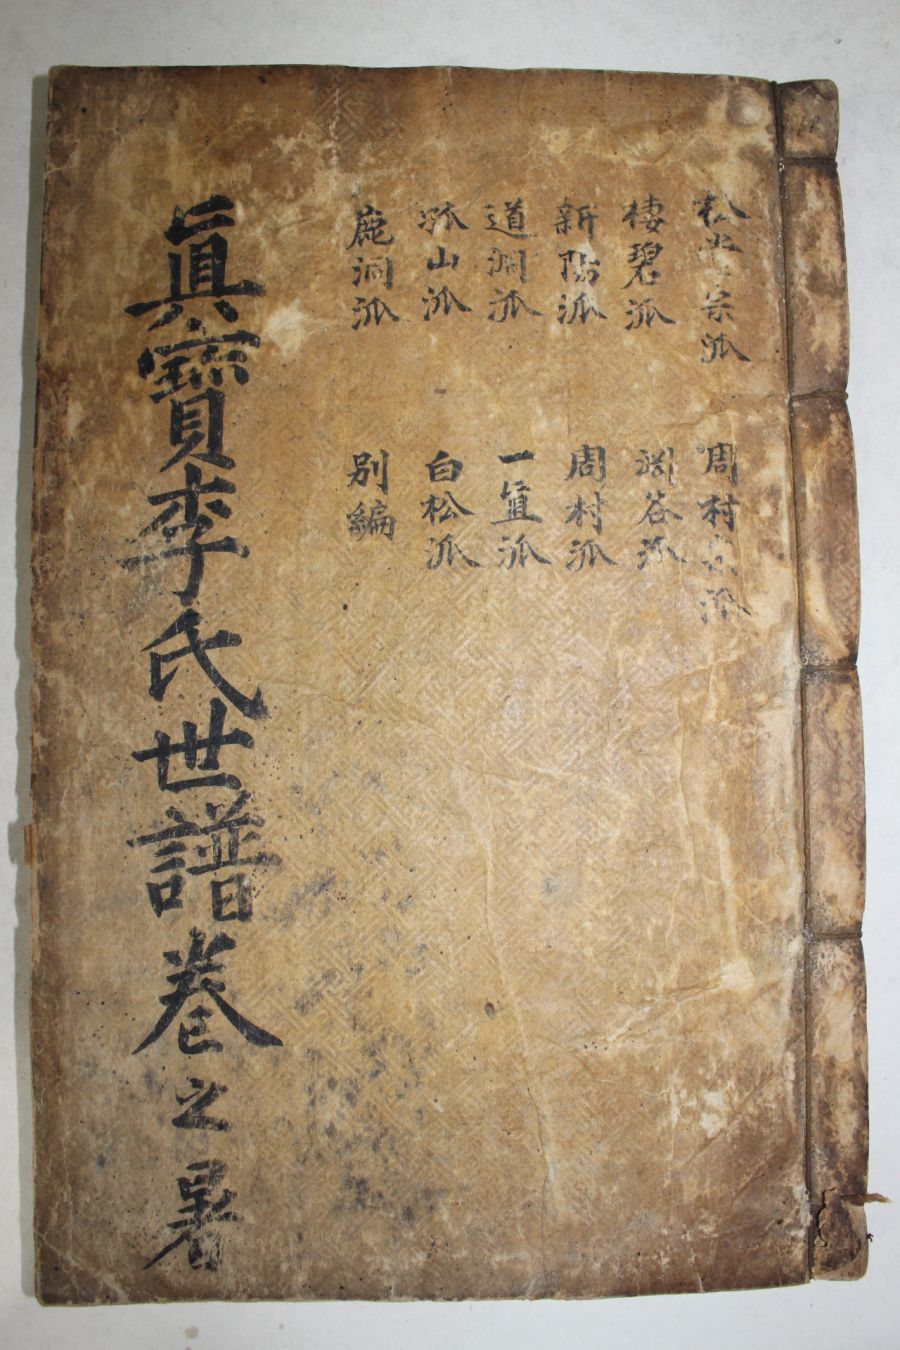 松宗派
棲碧派
新陽派
道派
孤山派
鹿洞派
周村宗派
渊谷派
周村派
一直派
白松派
別編
眞寶李氏世譜卷之暑